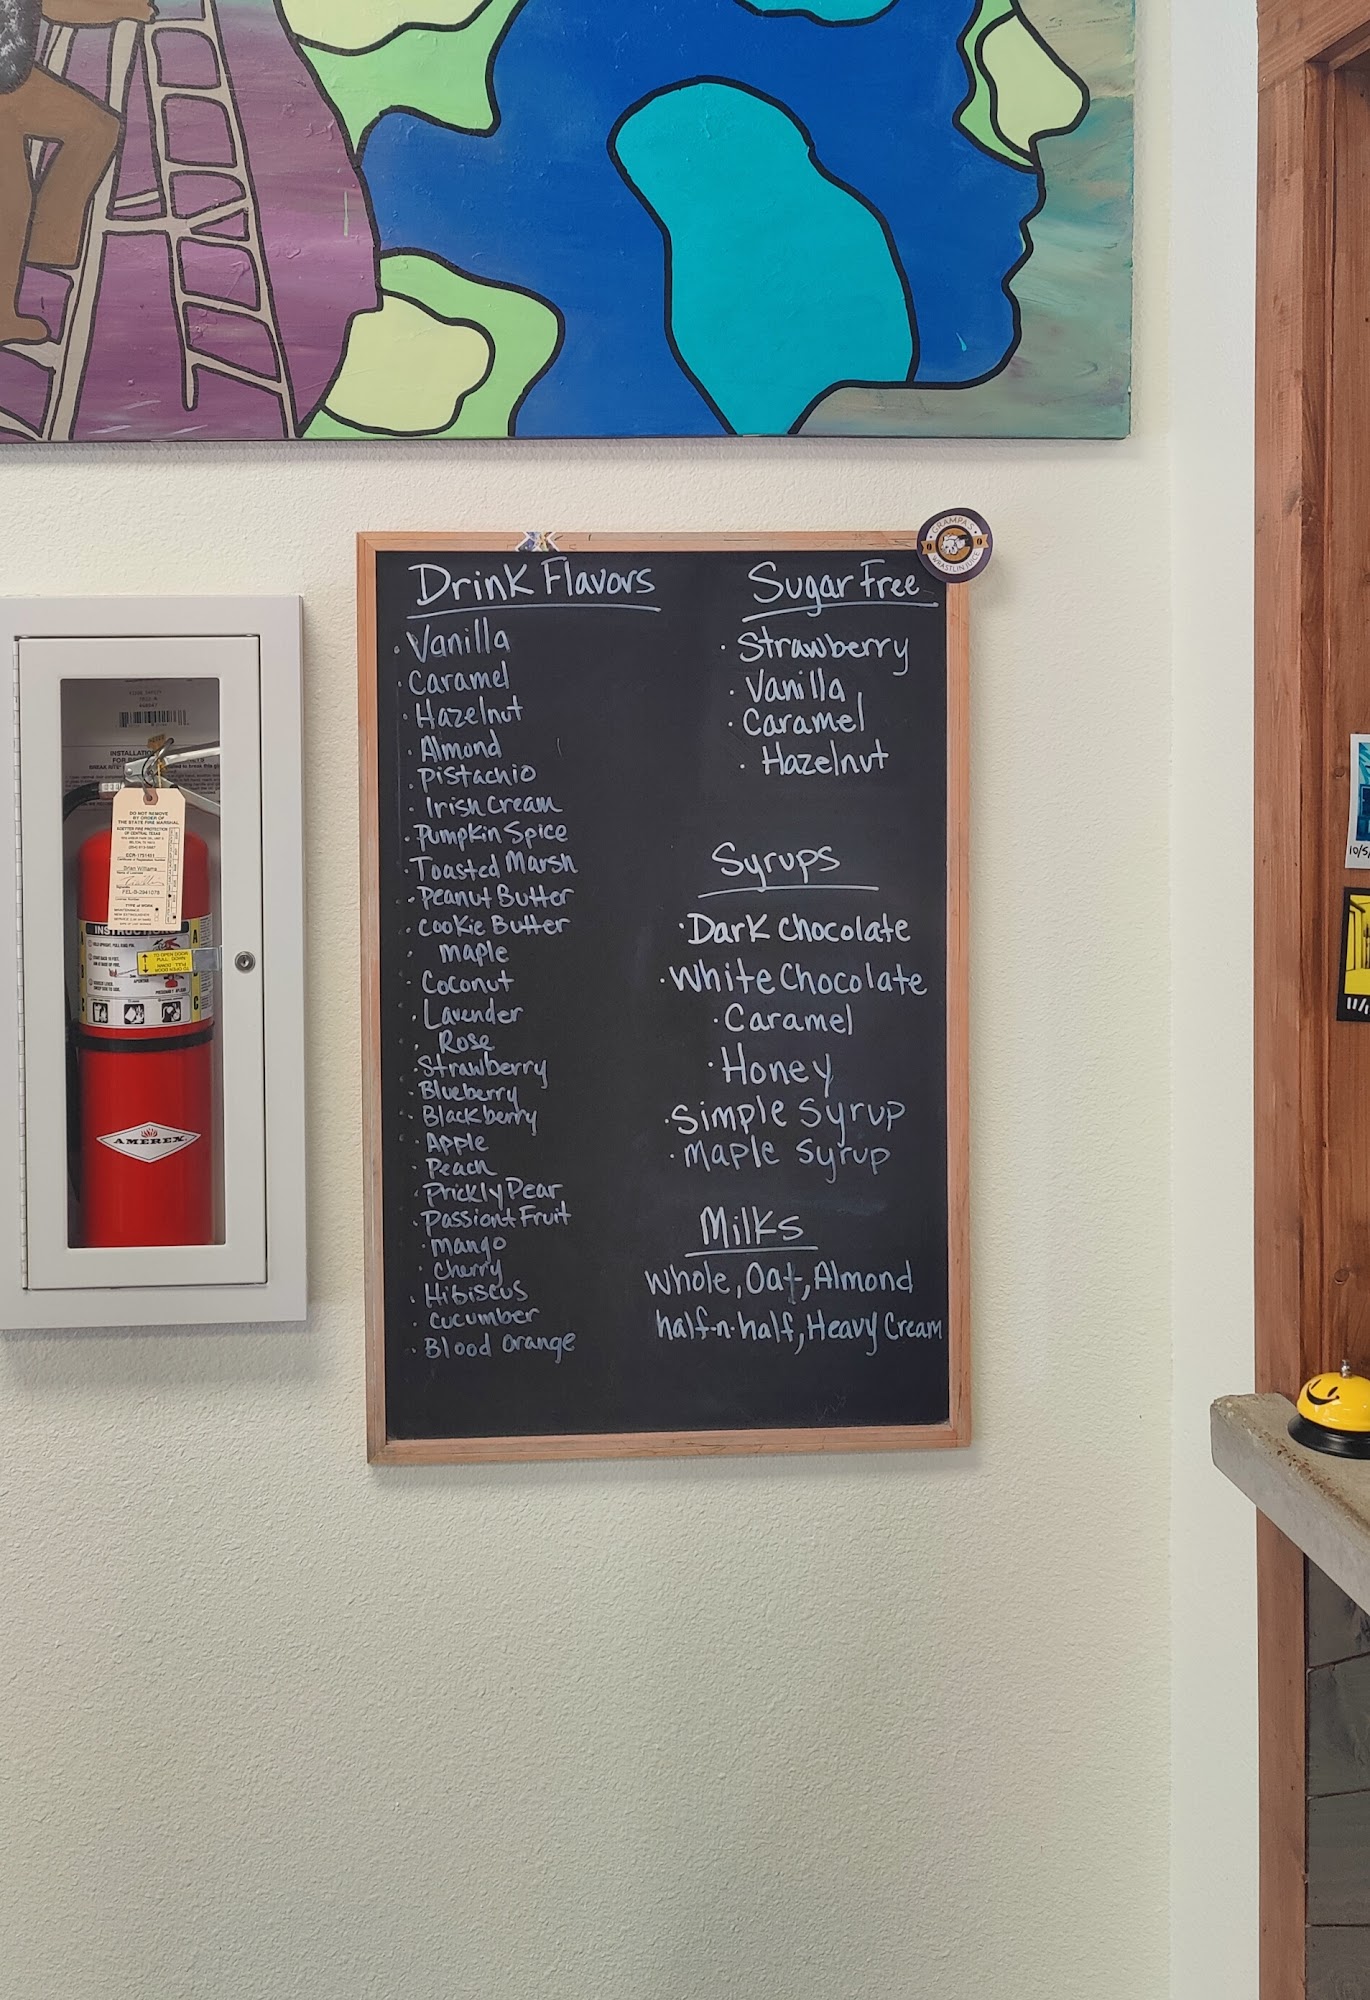 Drink Flavors
· Vanilla
· Caramel
· Hazelnut
· Almond
· Pistachio
· Irish Cream
· Pumpkin Spice
· Toasted Marsh
· Peanut Butter
· Cookie Butter
· Maple
· Coconut
· Lavender
· Rose
· Strawberry
· Blueberry
· Blackberry
· Apple
· Peach
· Prickly Pear
· Passiont Fruit
· Mango
· Cherry
· Hibiscus
· Cucumber
· Blood Orange
Sugar Free
· Strawberry
· Vanilla
· Caramel
· Hazelnut
Syrups
· Dark Chocolate
· White Chocolate
· Caramel
· Honey
· Simple Syrup
· Maple Syrup
Milks
Whole, Oat, Almond
half-n-half, Heavy Cream
GRAMPA'S
WRASTLIN JUICE
DO NOT REMOVE
BY ORDER OF
THE STATE FIRE MARSHAL
OF CENTRAL TEXAS
Brian Williams
TYPE OF WORK
INSTRUCTIONS
AMEREX
10/5/